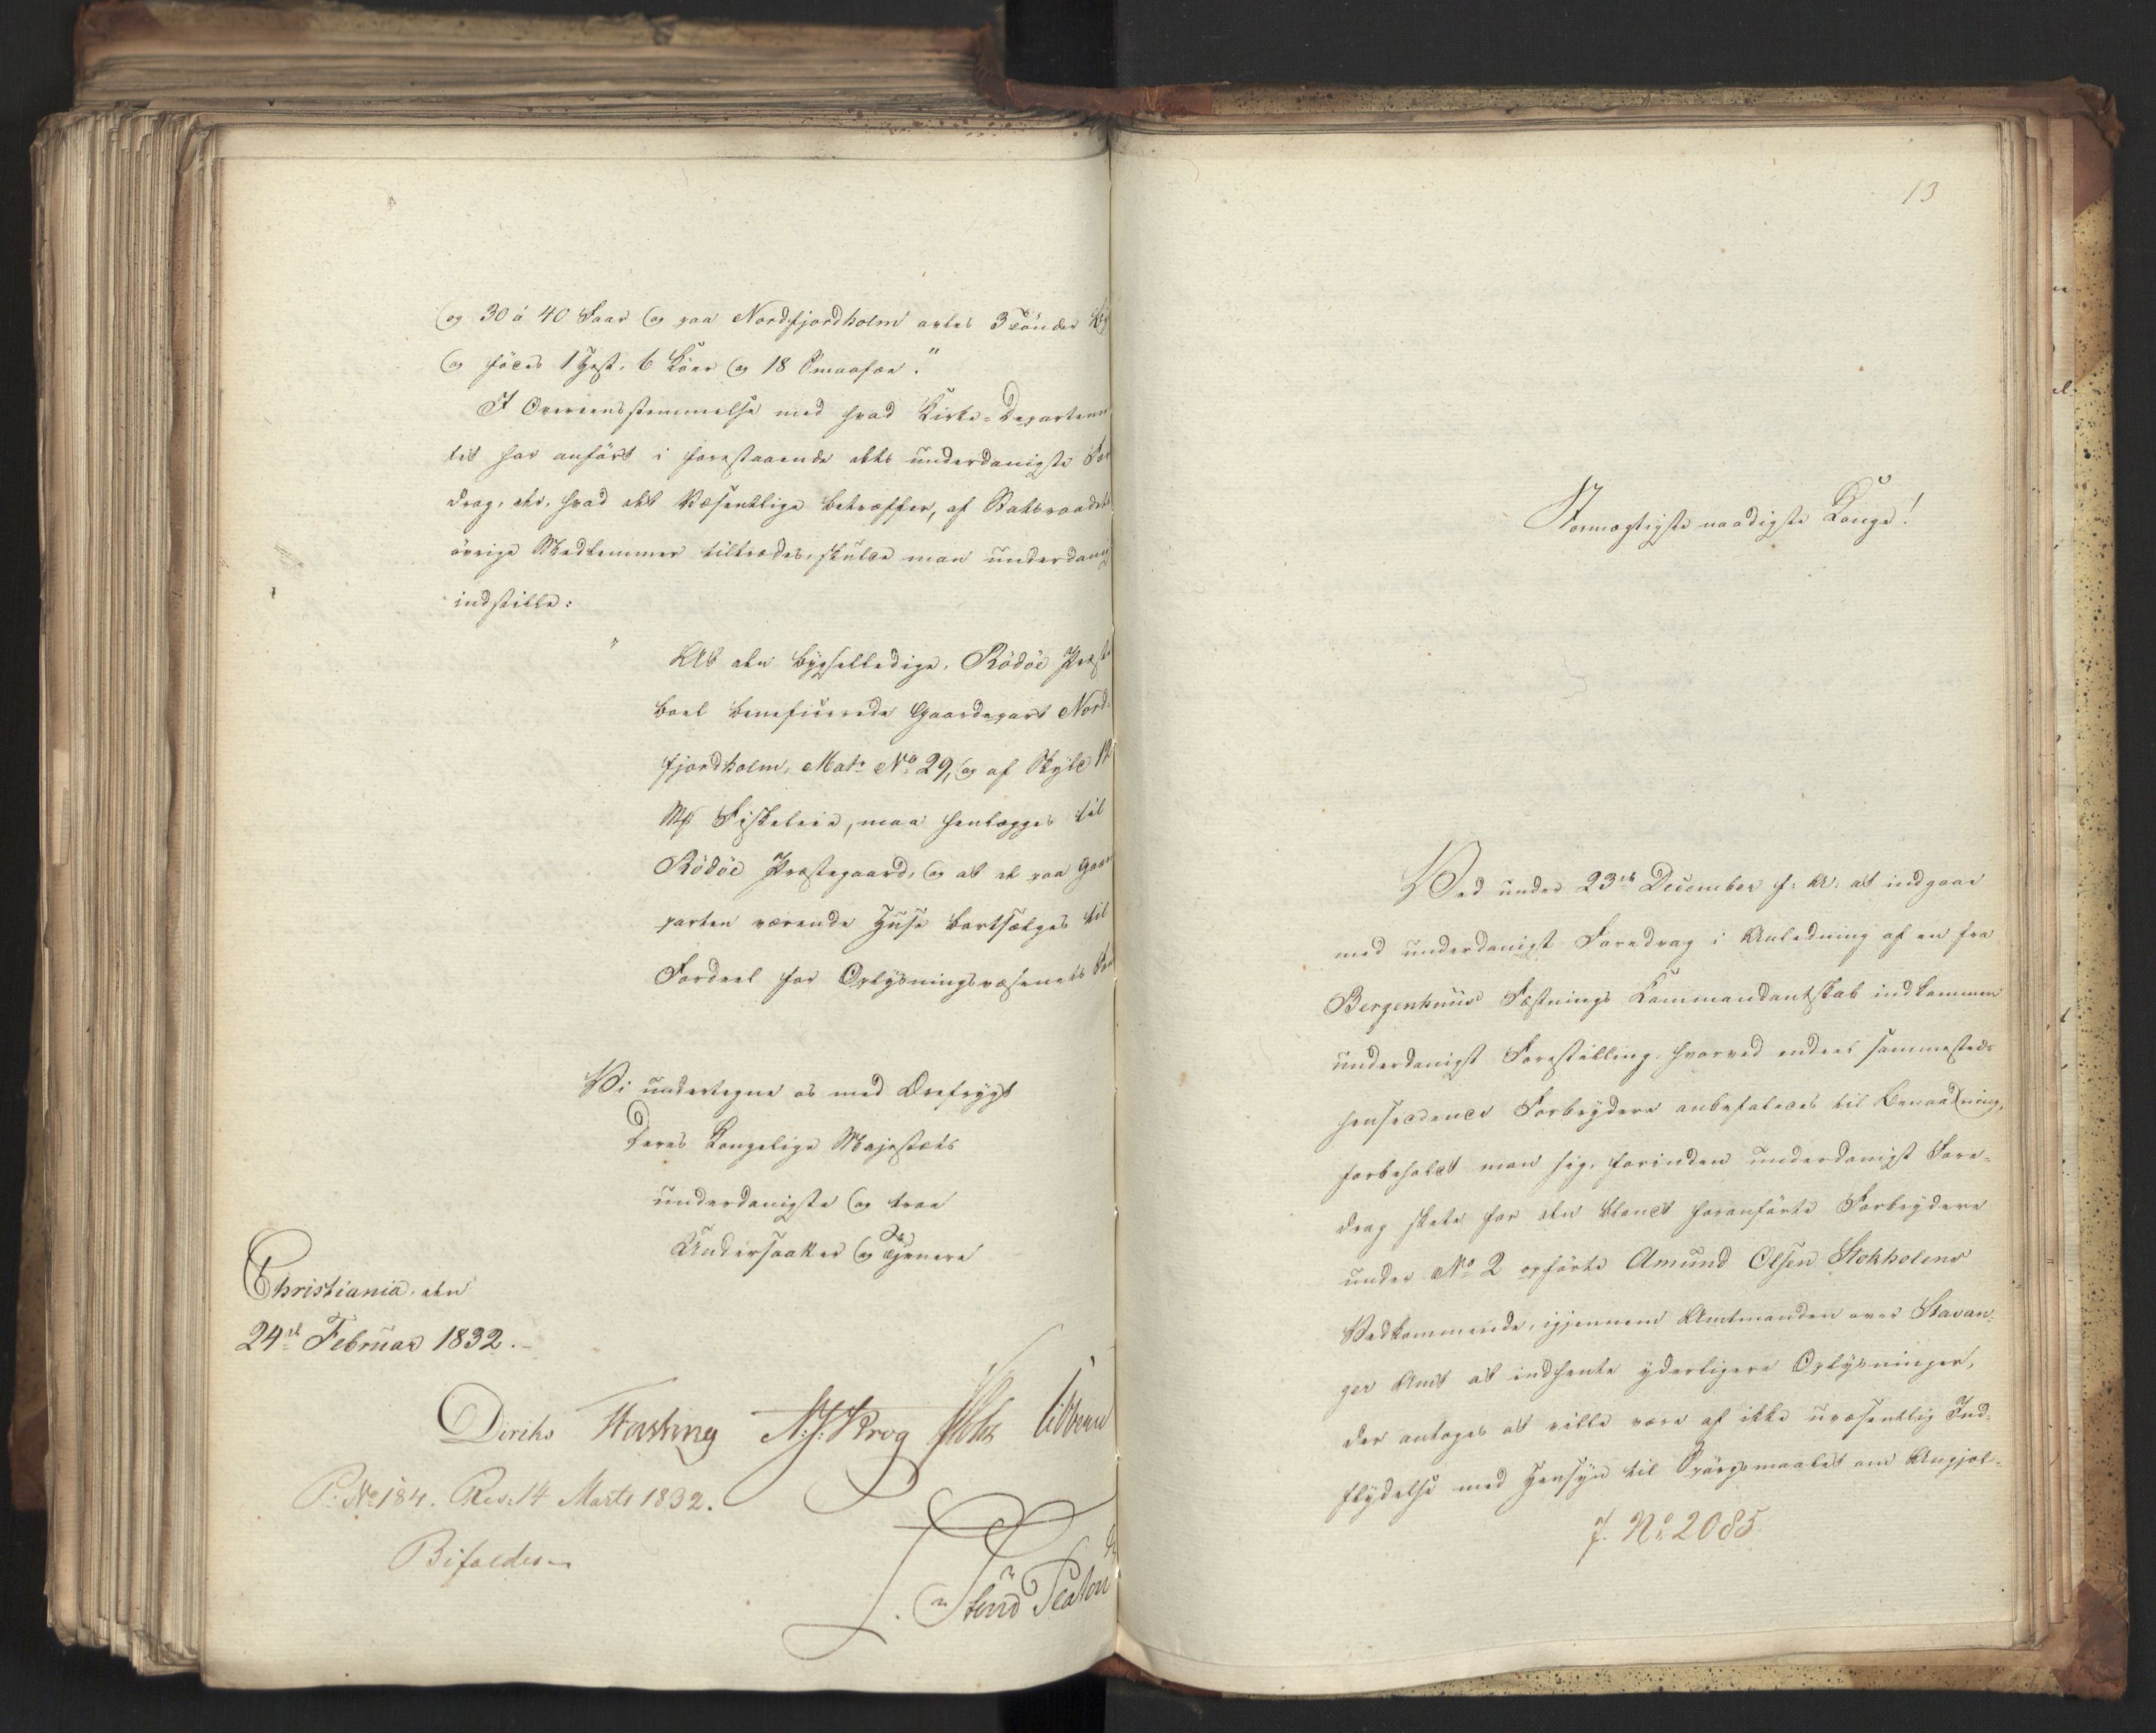 og 30 à 40 Faar og paa Nordfjordholm avles 3 Tönder
og föles 1 Hest, 6 Köer og 18 Smaafæe."
I Overeensstemmelse med hvad Kirke-Departemen
tet har anfört i forestaaende dets underdanigste For
drag, der, hvad det Væsentlige betræffer, af Statsraadets
övrige Medlemmer tiltrædes, skulde man underdanig
indstille:
" At den bygselledige, Rödöe Præste
boel beneficerede Gaardepart Nord-
fjordholm, Matr No 29, og af Skyld
Fiskeleie, maa henlægges til
Rödöe Præstegaard, og at de paa Gaard
parten værende Huse bortsælges til
Fordeel for Oplysningsvæsenets Fond
Vi undertegne os med Ærefrygt
Deres Kongelige Majestæts
underdanigste og troe
Undersaatter og Tjenere
Christiania, den
24de Februar 1832.
Diriks Fasting N. J. Krog Holst Vibe
P. No 184. Res: 14 Marts 1832.
Bifaldes
13
Stormægtigste naadigste Konge!
Ved under 23de December f: A: at indgaae
med underdanigst Foredrag i Anledning af en fra
Bergenhuus Fæstnings Kommandantskab indkommen
underdanigst Forestilling, hvorved endeel sammesteds
hensiddende Forbrydere anbefaledes til Benaadning,
forbeholdt man sig, forinden underdanigst Fore-
drag skete for den blandt foranförte Forbrydere
under No 2 opförte Amund Olsen Stokholens
Vedkommende, igjennem Amtmanden over Stavan-
ger Amt at indhente yderligere Oplysninger,
der antoges at ville være af ikke uvæsentlig Ind-
flydelse med Hensyn til Spörgsmaalet om Angjæl-
J. No 2085